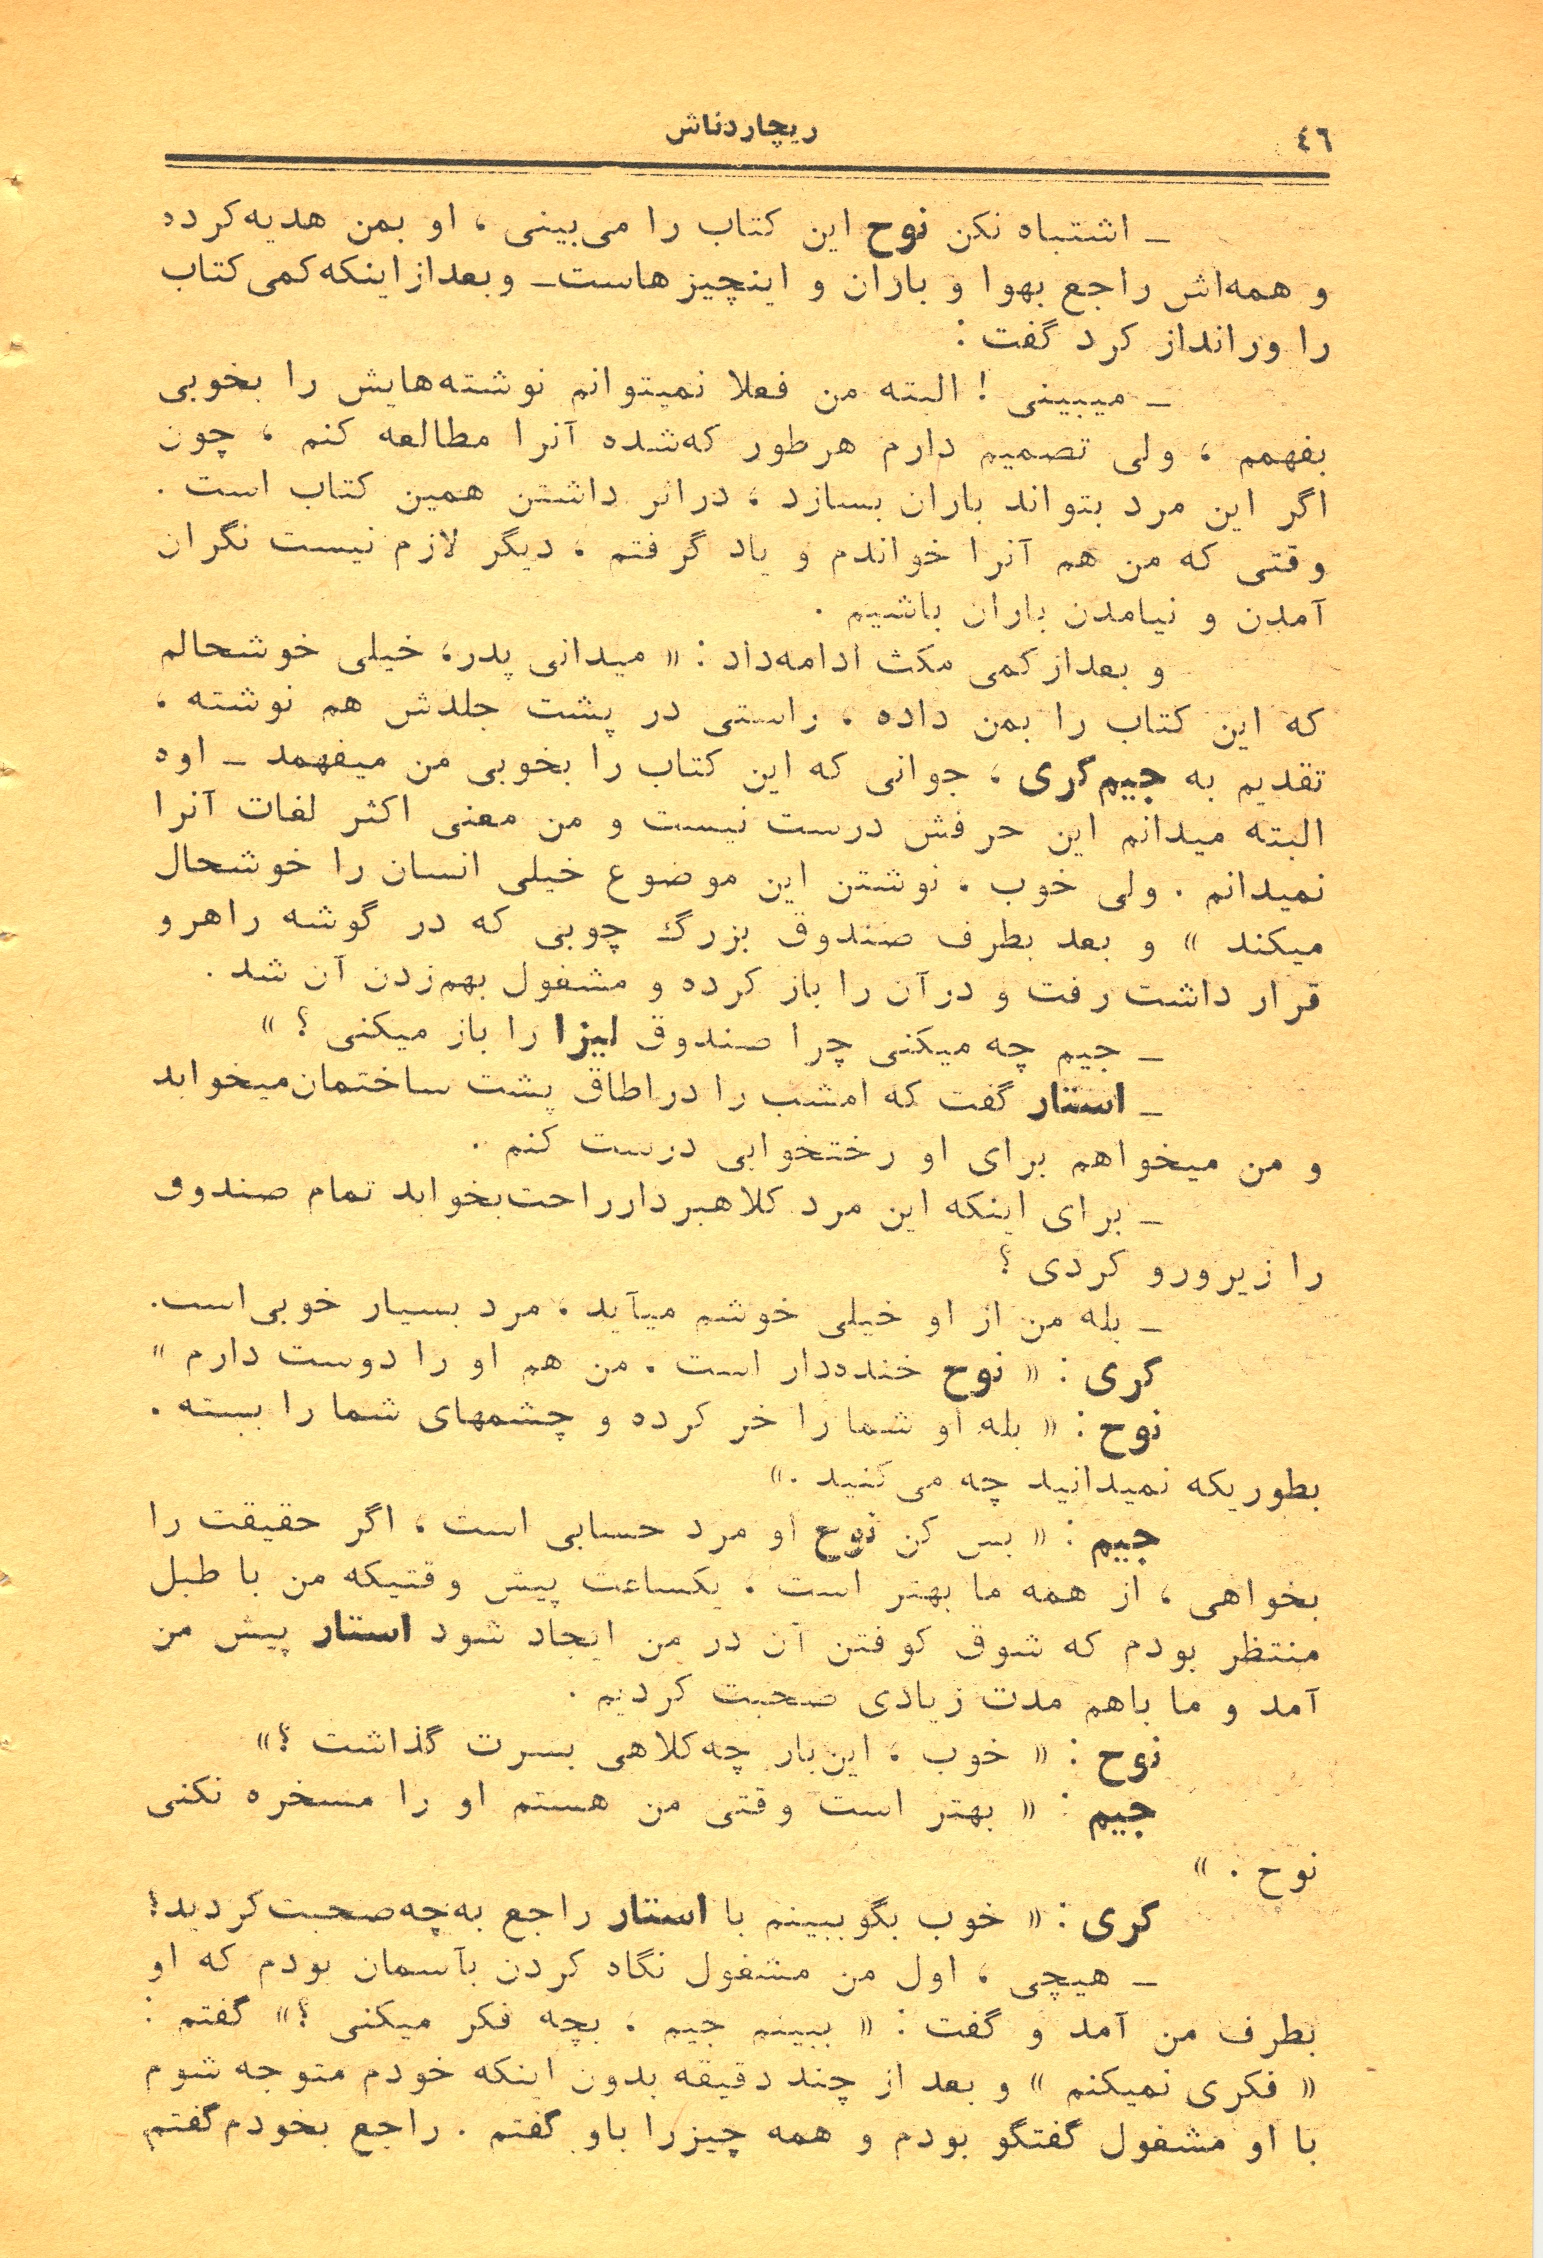 ٤٦
ریچاردناش
ـ اشتباه نکن نوح این کتاب را می‌بینی ، او بمن هدیه‌کرده
و همه‌اش راجع بهوا و باران و اینچیزهاست ـ و بعدازاینکه کمی کتاب
را ورانداز کرد گفت :
ـ میبینی ! البته من فعلا نمیتوانم نوشته‌هایش را بخوبی
بفهمم ، ولی تصمیم دارم هرطور که‌شده آنرا مطالعه کنم ، چون
اگر این مرد بتواند باران بسازد ، دراثر داشتن همین کتاب است .
وقتی که من هم آنرا خواندم و یاد گرفتم ، دیگر لازم نیست نگران
آمدن و نیامدن باران باشیم .
و بعدازکمی مکث ادامه‌داد : « میدانی پدر، خیلی خوشحالم
که این کتاب را بمن داده ، راستی در پشت جلدش هم نوشته ،
تقدیم به جیم‌کری ، جوانی که این کتاب را بخوبی من میفهمد ـ اوه
البته میدانم این حرفش درست نیست و من معنی اکثر لغات آنرا
نمیدانم . ولی خوب . نوشتن این موضوع خیلی انسان را خوشحال
میکند » و بعد بطرف صندوق بزرگ چوبی که در گوشه راهرو
قرار داشت رفت و درآن را باز کرده و مشغول بهم‌زدن آن شد .
ـ جیم چه میکنی چرا صندوق لیزا را باز میکنی ؟ »
ـ استار گفت که امشب را دراطاق پشت ساختمان‌میخوابد
و من میخواهم برای او رختخوابی درست کنم .
ـ برای اینکه این مرد کلاهبردارراحت‌بخوابد تمام صندوق
را زیرورو کردی ؟
ـ بله من از او خیلی خوشم میآید ، مرد بسیار خوبی‌است.
کری : « نوح خنده‌دار است . من هم او را دوست دارم »
نوح : « بله او شما را خر کرده و چشمهای شما را ببسته .
بطوریکه نمیدانید چه می‌کنید .»
جیم : « بس کن نوح او مرد حسابی است ، اگر حقیقت را
بخواهی ، از همه ما بهتر است . یکساعت پیش وقتیکه من با طبل
منتظر بودم که شوق کوفتن آن در من ایجاد شود استار پیش من
آمد و ما باهم مدت زیادی صحبت کردیم .
نوح : « خوب ، این‌بار چه‌کلاهی بسرت گذاشت ؟»
جیم : « بهتر است وقتی من هستم او را مسخره نکنی
نوح . »
کری : « خوب بگوببینم با استار راجع به‌چه‌صحبت‌کردید؟
ـ هیچی ، اول من مشغول نگاه کردن بآسمان بودم که او
بطرف من آمد و گفت : « ببینم جیم . بچه فکر میکنی ؟» گفتم :
« فکری نمیکنم » و بعد از چند دقیقه بدون اینکه خودم متوجه شوم
با او مشغول گفتگو بودم و همه چیزرا باو گفتم . راجع بخودم گفتم